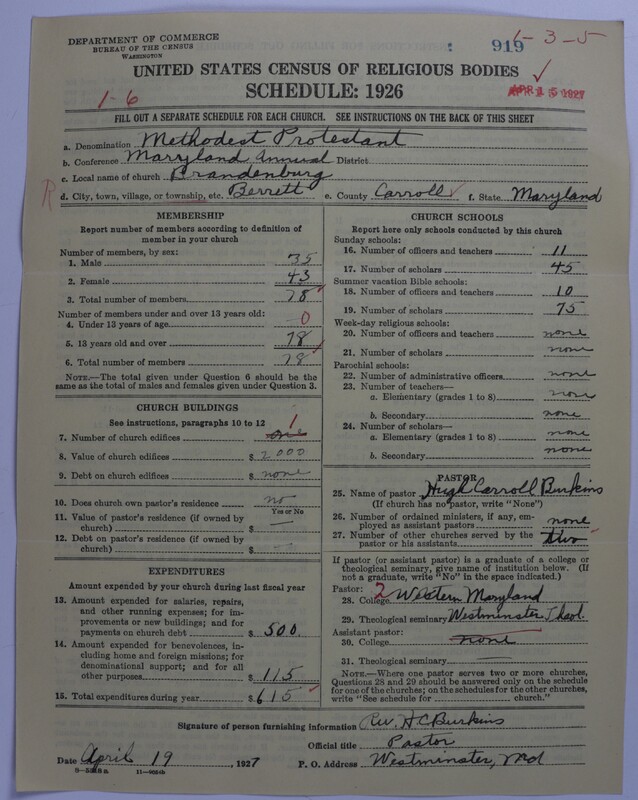 DEPARTMENT OF COMMERCE
BUREAU OF THE CENSUS
WASHINGTON
919
1-3-5
UNITED STATES CENSUS OF RELIGIOUS BODIES
SCHEDULE: 1926
1-6
APR 1927
FILL OUT A SEPARATE SCHEDULE FOR EACH CHURCH. SEE INSTRUCTIONS ON THE BACK OF THIS SHEET
a. Denomination Methodest Protestant
b. Conference Maryland Annual District
c. Local name of church Brandenburg
R d. City, town, village, or township, etc. Berrett e. County Carroll f. State Maryland
MEMBERSHIP
Report number of members according to definition of
member in your church
Number of members, by sex:
1. Male 35
2. Female 43
3. Total number of members 78
Number of members under and over 13 years old:
4. Under 13 years of age 0
5. 13 years old and over 78
6. Total number of members 78
NOTE.—The total given under Question 6 should be the
same as the total of males and females given under Question 3.
CHURCH BUILDINGS
See instructions, paragraphs 10 to 12
7. Number of church edifices one 1
8. Value of church edifices $ 2000
9. Debt on church edifices $ none
10. Does church own pastor's residence no
Yes or No
11. Value of pastor's residence (if owned by
church) $ —
12. Debt on pastor's residence (if owned by
church) $ —
EXPENDITURES
Amount expended by your church during last fiscal year
13. Amount expended for salaries, repairs,
and other running expenses; for im-
provements or new buildings; and for
payments on church debt $ 500.
14. Amount expended for benevolences,
including home and foreign missions; for
denominational support; and for all
other purposes $ 115
15. Total expenditures during year $ 615
CHURCH SCHOOLS
Report here only schools conducted by this church
Sunday schools:
16. Number of officers and teachers 11
17. Number of scholars 45
Summer vacation Bible schools:
18. Number of officers and teachers 10
19. Number of scholars 75
Week-day religious schools:
20. Number of officers and teachers none
21. Number of scholars none
Parochial schools:
22. Number of administrative officers none
23. Number of teachers—
a. Elementary (grades 1 to 8) none
b. Secondary none
24. Number of scholars—
a. Elementary (grades 1 to 8) none
b. Secondary none
PASTOR
25. Name of pastor Hugh Carroll Burkins
(If church has no pastor, write "None")
26. Number of ordained ministers, if any, em-
ployed as assistant pastors none
27. Number of other churches served by the
pastor or his assistants two
If pastor (or assistant pastor) is a graduate of a college or
theological seminary, give name of institution below. (If
not a graduate, write "No" in the space indicated.)
Pastor:
28. College 2 Western Maryland
29. Theological seminary Westminster Theol.
Assistant pastor:
30. College none
31. Theological seminary
NOTE.—Where one pastor serves two or more churches,
Questions 28 and 29 should be answered only on the schedule
for one of the churches; on the schedules for the other churches,
write "See schedule for church."
Signature of person furnishing information Rev. H C Burkins
Official title Pastor
Date April 19, 1927 P. O. Address Westminster, Md